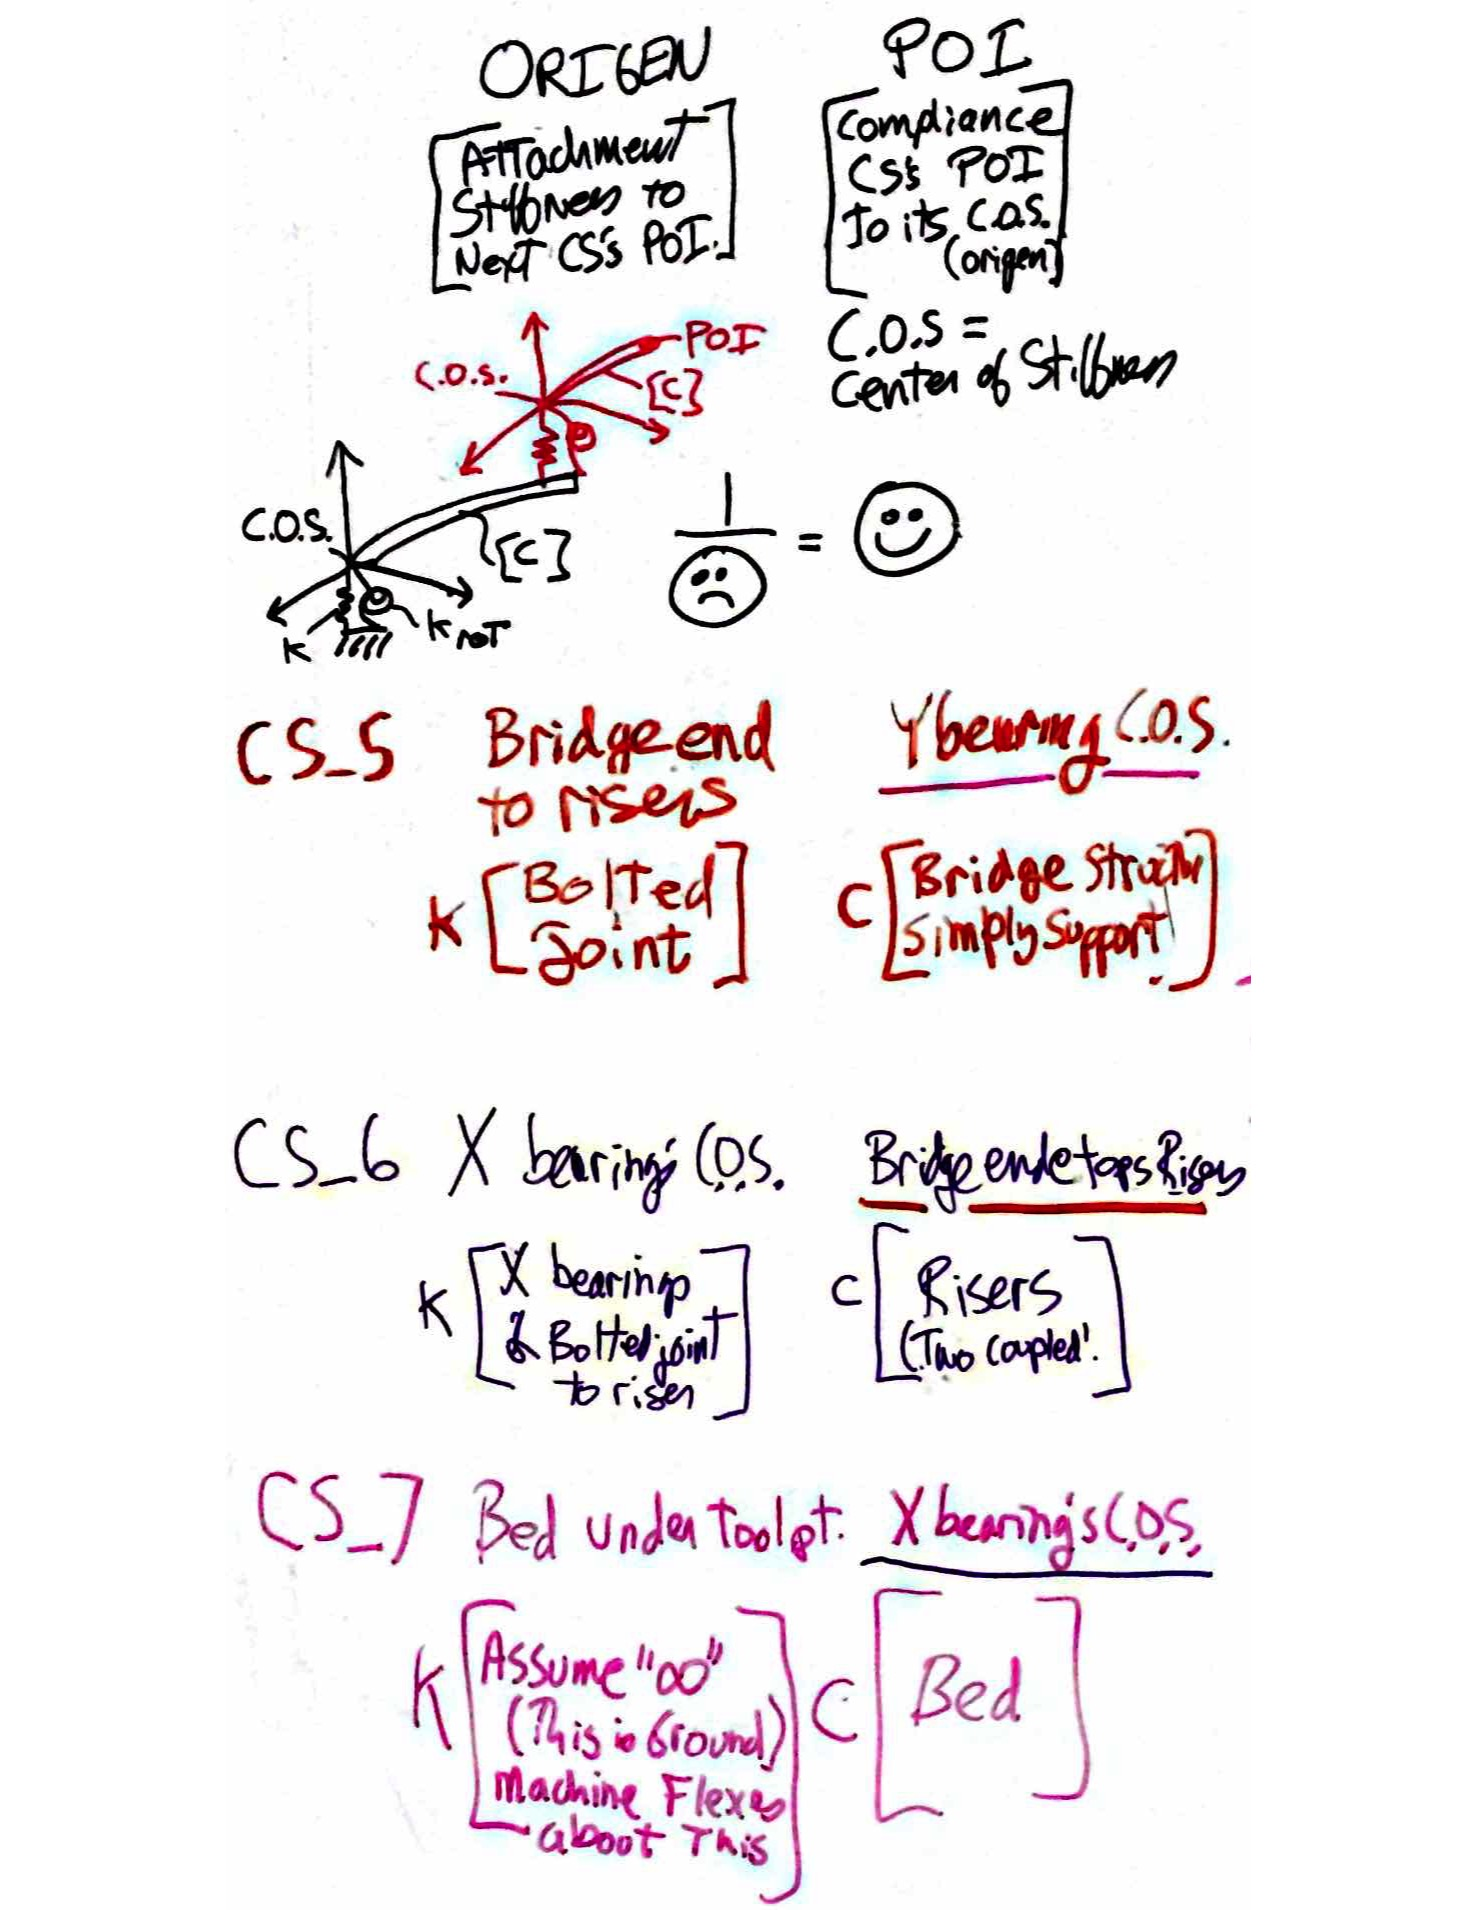 ORIGEN
POI
[Attachment
Stiffness to
Next CS's POI.]
[Compliance
CS's POI
to its C.O.S.
(origen)]
C.O.S =
Center of Stiffness
C.O.S.
POI
[C]
C.O.S.
[C]
K
K ROT
1
=
CS_5
Bridge end
to risers
Y bearing C.O.S.
K [Bolted
Joint]
C [Bridge Structur
Simply Support.]
CS_6
X bearing's C.O.S.
Bridge end @ tops Risers
K [X bearings
& Bolted joint
to riser]
C [Risers
(Two coupled).]
CS_7
Bed under Tool pt.
X bearing's C.O.S.
K [Assume "∞"
(This is Ground)
Machine Flexes
about This]
C [Bed]